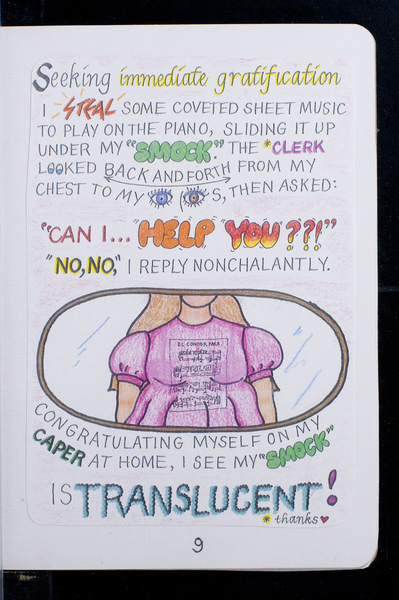 Seeking immediate gratification
I STEAL SOME COVETED SHEET MUSIC
TO PLAY ON THE PIANO, SLIDING IT UP
UNDER MY "SMOCK." THE *CLERK
LOOKED BACK AND FORTH FROM MY
CHEST TO MY S, THEN ASKED:
"CAN I... "HELP" "YOU??!"
"NO, NO," I REPLY NONCHALANTLY.
EL CONDOR PASA
CONGRATULATING MYSELF ON MY
CAPER AT HOME, I SEE MY "SMOCK"
IS TRANSLUCENT!
*thanks♥
9